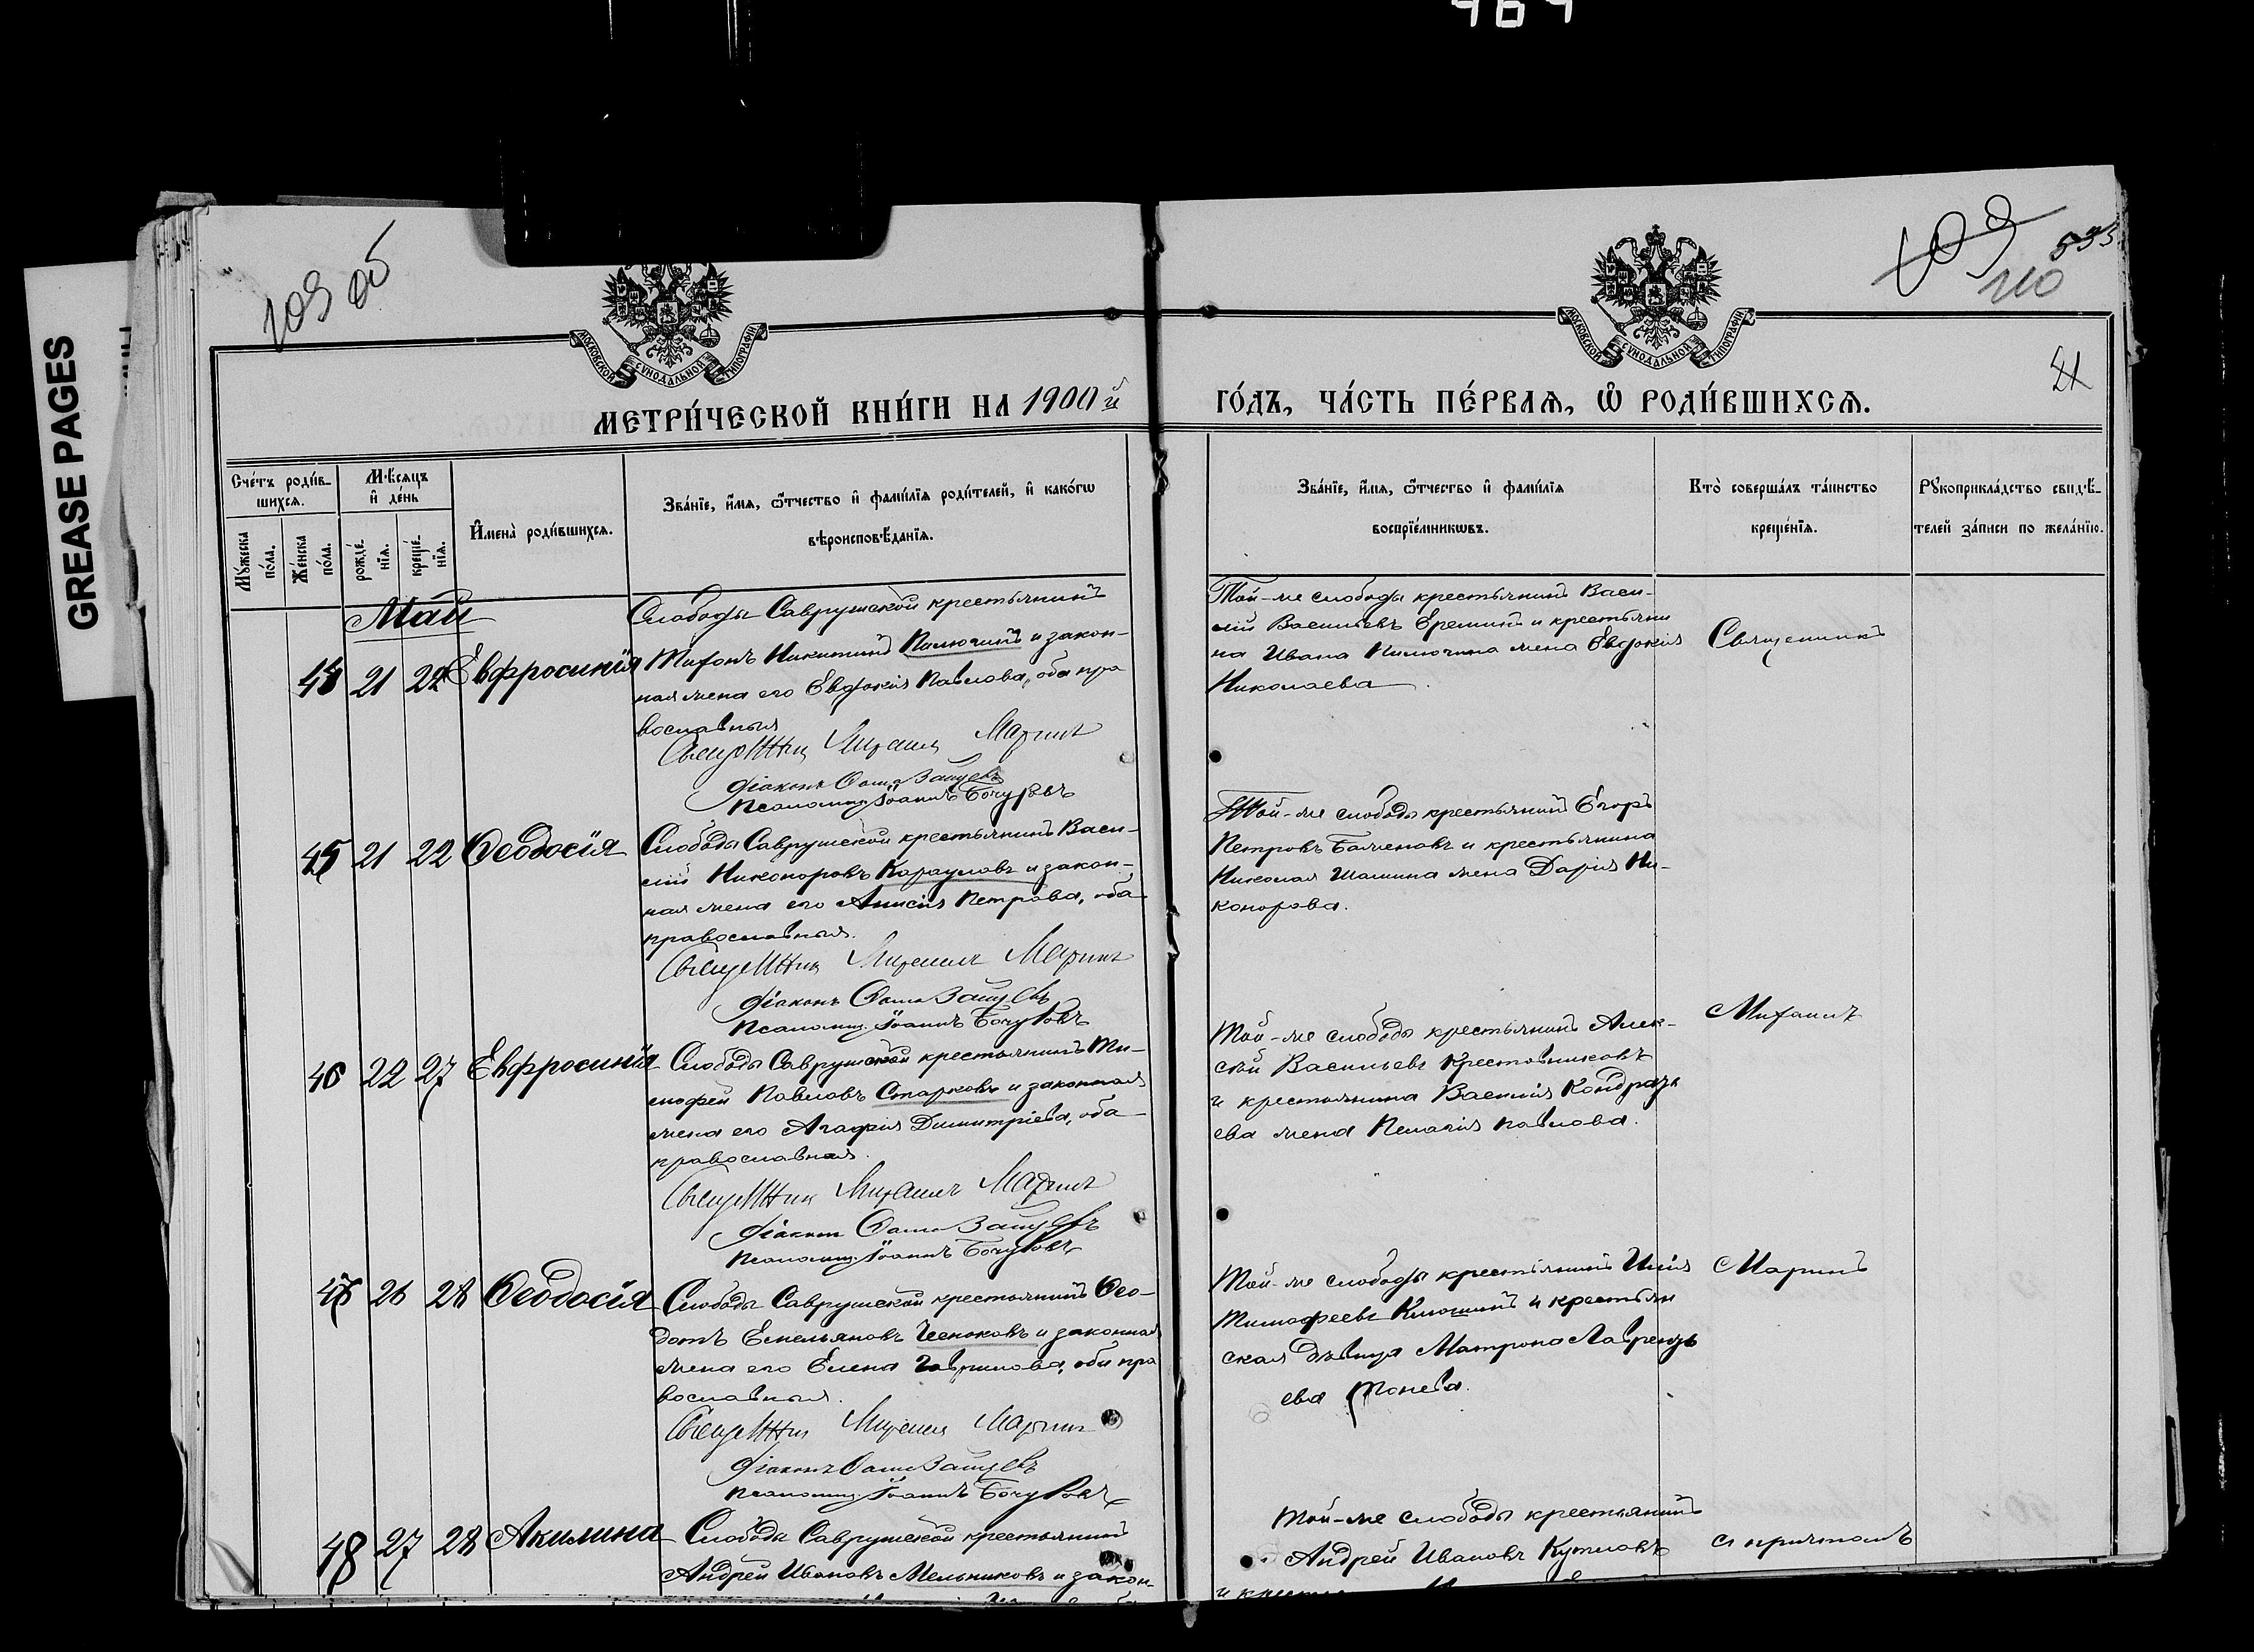 464
GREASE PAGES
109 об
109
535
110
21
МОСКОВСКОЙ СѴНОДАЛЬНОЙ ТИПОГРАФІИ
МОСКОВСКОЙ СѴНОДАЛЬНОЙ ТИПОГРАФІИ
МЕТРИ́ЧЕСКОЙ КНИ́ГИ НА 1900й
ГО́ДЪ, ЧА́СТЬ ПЕ́РВАѦ, Ѡ РОДИ́ВШИХСѦ.
Сче́тъ роди́в-
шихсѧ.
Мꙋжеска по́ла.
Же́нска по́ла.
Мѣ́сѧцъ
и де́нь
рожде́нїѧ.
креще́нїѧ.
Имена̀ роди́вшихсѧ.
Зва́нїе, и́мѧ, ѻ́тчество и фами́лїѧ роди́телей, и како́гѡ
вѣроисповѣ́данїѧ.
Зва́нїе, и́мѧ, ѻ́тчество и фами́лїѧ
воспрїе́мникѡвъ.
Кто̀ соверша́лъ та́инство
креще́нїѧ.
Рꙋкоприкла́дство свидѣ́-
телей за́писи по жела́нїю.
Май
44 21 22 Евфросинія
Слободы Саврушской крестьянинъ
Тихонъ Никитинъ Пилюгинъ и закон-
ная жена его Евдокія Павлова, оба пра
вославныя
Священникъ Михаилъ Маринъ
Діаконъ Зайцевъ
Псаломщ. Іоаннъ
Той-же слободы крестьянинъ Васи-
лій Васильевъ Еремкинъ и крестьяни
на Ивана Пилюгина жена Евдокія
Николаева.
Священникъ
45 21 22 Ѳеодосія
Слободы Саврушской крестьянинъ Васи-
лій Никоноровъ Карауловъ и закон-
ная жена его Анисія Петрова, оба
православныя.
Священникъ Михаилъ Маринъ
Діаконъ Зайцевъ
Псаломщ. Іоаннъ
Той-же слободы крестьянинъ Егоръ
Петровъ Баженовъ и крестьянина
Николая Шашина жена Дарія Ни-
конорова.
46 22 27 Евфросинія
Слободы Саврушской крестьянинъ Ти-
мофей Павловъ Старковъ и законная
жена его Агафія Димитріева, оба
православныя.
Священникъ Михаилъ Маринъ
Діаконъ Зайцевъ
Псаломщ. Іоаннъ
Той-же слободы крестьянинъ Алек-
сѣй Васильевъ Крестовниковъ
и крестьянина Василія Кондрать
ева жена Пелагія Павлова.
Михаилъ
47 26 28 Ѳеодосія
Слободы Саврушской крестьянинъ Ѳео-
дотъ Емельяновъ и законная
жена его Елена Гаврилова, оба пра
вославныя.
Священникъ Михаилъ Маринъ
Діаконъ Зайцевъ
Псаломщ. Іоаннъ
Той-же слободы крестьянинъ
Тимофеевъ Клюшинъ и крестьян
ская дѣвица Матрона Лаврентъ
ева
Маринъ
48 27 28 Акилина
Слободы Саврушской крестьянинъ
Андрей Ивановъ Мельниковъ и закон-
Той-же слободы крестьянинъ
Андрей Ивановъ Кутловъ
съ причтомъ